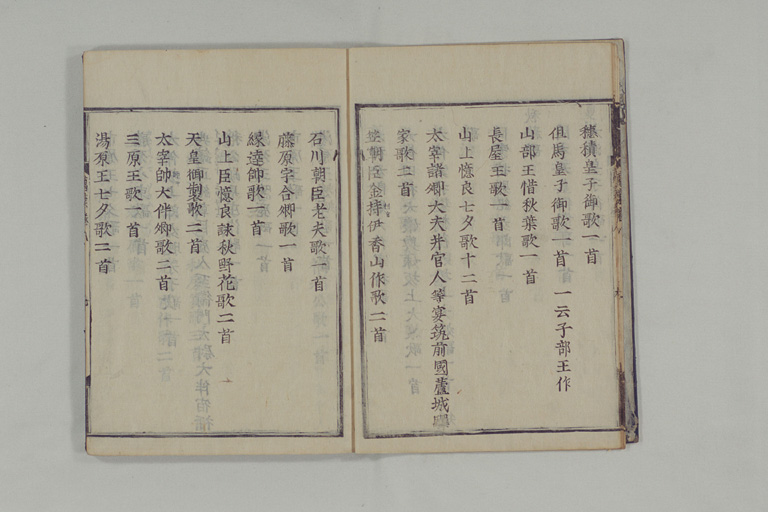 穗積皇子御歌二首
但馬皇子御歌一首 一云子部王作
山部王惜秋葉歌一首
長屋王歌一首
山上憶良七夕歌十二首
太宰諸卿大夫并官人等宴筑前國蘆城驛
家歌二首
笠朝臣金村伊香山作歌二首
石川朝臣老夫歌一首
藤原宇合卿歌一首
緣達師歌一首
山上臣憶良詠秋野花歌二首
天皇御製歌二首
太宰帥大伴卿歌二首
三原王歌一首
湯原王七夕歌二首